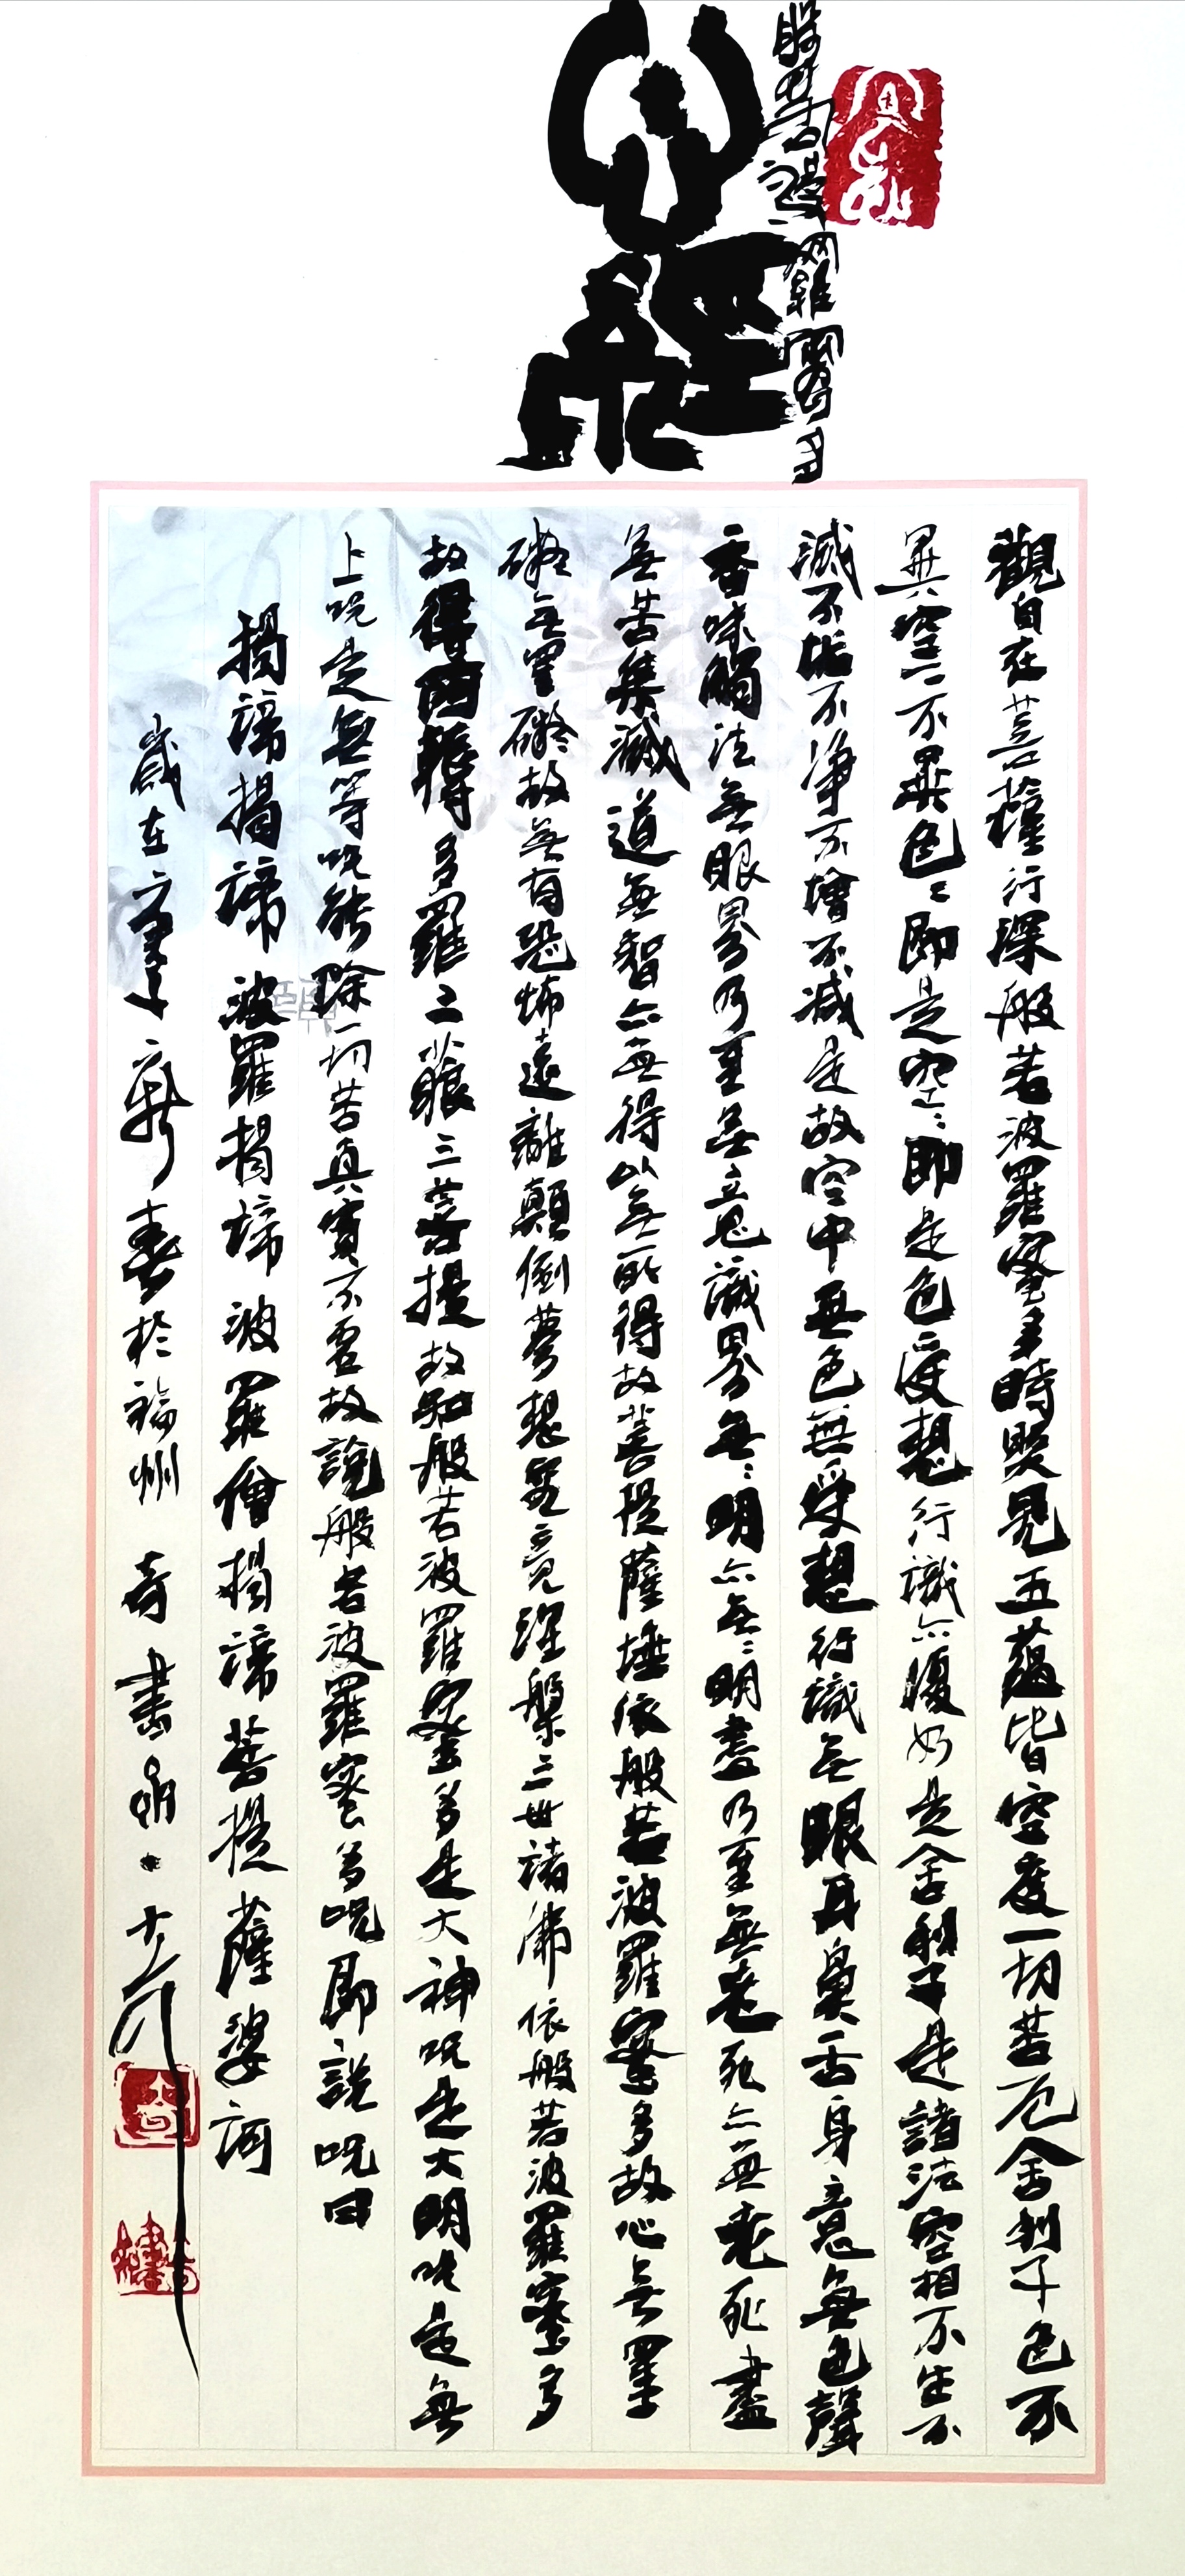 心經
般若波羅蜜多
觀自在菩薩行深般若波羅蜜多時照見五蘊皆空度一切苦厄舍利子色不
異空空不異色色即是空空即是色受想行識亦復如是舍利子是諸法空相不生不
滅不垢不净不增不減是故空中無色無受想行識無眼耳鼻舌身意無色聲
香味觸法無眼界乃至無意識界無無明亦無無明盡乃至無老死亦無老死盡
無苦集滅道無智亦無得以無所得故菩提薩埵依般若波羅蜜多故心無罣
礙無罣礙故無有恐怖遠離顛倒夢想究竟涅槃三世諸佛依般若波羅蜜多
故得阿耨多羅三藐三菩提故知般若波羅蜜多是大神咒是大明咒是無
上咒是無等咒能除一切苦真實不虛故說般若波羅蜜多咒即說咒曰
揭諦揭諦波羅揭諦波羅僧揭諦菩提薩婆訶
歲在辛新春於福州 奇書